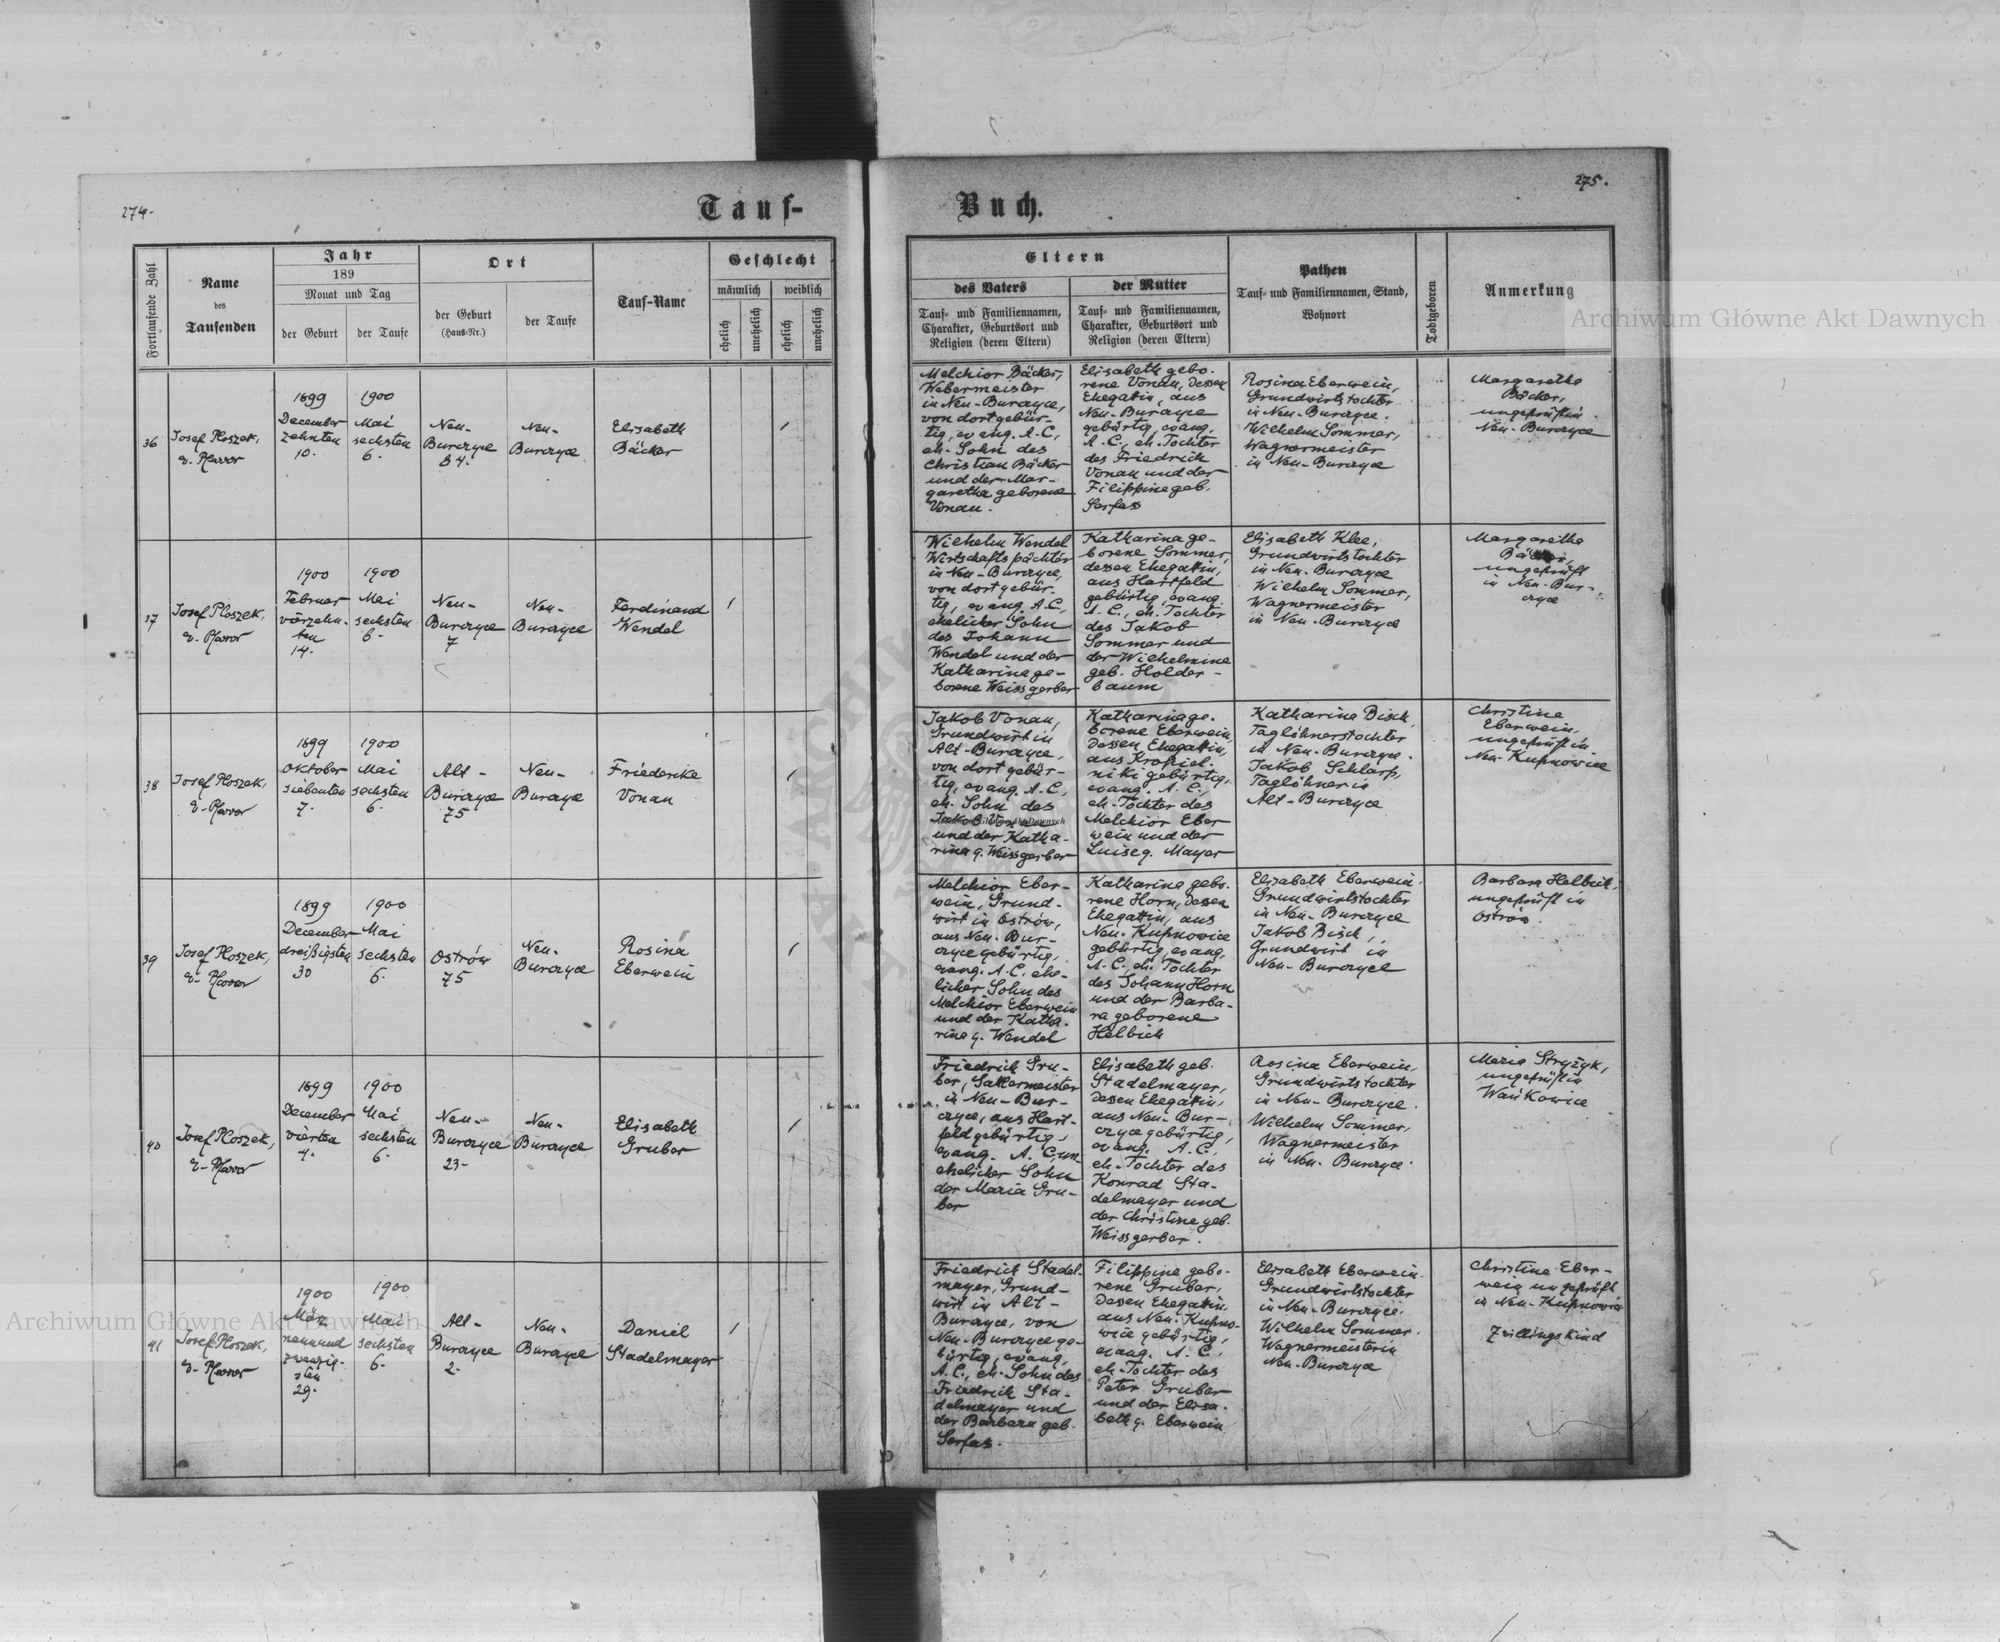 274.
Tauf-
Fortlaufende Zahl
Name
des
Taufenden
Jahr
189
Monat und Tag
der Geburt
der Taufe
Ort
der Geburt
(Haus-Nr.)
der Taufe
Tauf-Name
Geschlecht
männlich
weiblich
ehelich
unehelich
ehelich
unehelich
36
Josef Ploszek,
ev. Pfarrer
1899
December
zehnten
10.
1900
Mai
sechsten
6.
Neu-
Burczyce
84.
Neu-
Burczyce
Elisabeth
Bäcker
37
Josef Ploszek,
ev. Pfarrer
1900
Februar
vierzehn-
ten
14.
1900
Mai
sechsten
6.
Neu-
Burczyce
7
Neu-
Burczyce
Ferdinand
Wendel
38
Josef Ploszek,
ev. Pfarrer
1899
Oktober
siebenten
7.
1900
Mai
sechsten
6.
Alt-
Burczyce
75
Neu-
Burczyce
Friederike
Vonau
39
Josef Ploszek,
ev. Pfarrer
1899
December
dreißigsten
30
1900
Mai
sechsten
6.
Ostrów
75
Neu-
Burczyce
Rosina
Eberwein
40
Josef Ploszek,
ev. Pfarrer
1899
December
vierten
4.
1900
Mai
sechsten
6.
Neu-
Burczyce
23.
Neu-
Burczyce
Elisabeth
Gruber
41
Josef Ploszek,
ev. Pfarrer
1900
März
neunund
zwanzig-
sten
29.
1900
Mai
sechsten
6.
Alt-
Burczyce
2.
Neu-
Burczyce
Daniel
Stadelmayer
275.
Buch.
Eltern
des Vaters
Tauf- und Familiennamen,
Charakter, Geburtsort und
Religion (deren Eltern)
der Mutter
Tauf- und Familiennamen,
Charakter, Geburtsort und
Religion (deren Eltern)
Pathen
Tauf- und Familiennamen, Stand,
Wohnort
Todtgeboren
Anmerkung
Melchior Bäcker,
Webermeister
in Neu-Burczyce,
von dort gebür-
tig, evang. A.C.,
eh. Sohn des
Christian Bäcker
und der Mar-
garetha geborene
Vonau.
Elisabeth gebo-
rene Vonau, dessen
Ehegattin, aus
Neu-Burczyce
gebürtig, evang.
A.C., eh. Tochter
des Friedrich
Vonau und der
Filippine geb.
Serfas
Rosina Eberwein,
Grundwirtstochter
in Neu-Burczyce.
Wilhelm Sommer,
Wagnermeister
in Neu-Burczyce
Margaretha
Bäcker,
ungeprüft in
Neu-Burczyce
Wilhelm Wendel
Wirtschaftspächter
in Neu-Burczyce,
von dort gebür-
tig, evang. A.C.,
ehelicher Sohn
des Johann
Wendel und der
Katharine ge-
borene Weissgerber
Katharina ge-
borene Sommer,
dessen Ehegattin,
aus Hartfeld
gebürtig, evang.
A.C., eh. Tochter
des Jakob
Sommer und
der Wilhelmine
geb. Holder-
baum
Elisabeth Klee,
Grundwirtstochter
in Neu-Burczyce
Wilhelm Sommer,
Wagnermeister
in Neu-Burczyce
Margaretha
Bäcker,
ungeprüft
in Neu-Bur-
czyce
Jakob Vonau,
Grundwirt in
Alt-Burczyce,
von dort gebür-
tig, evang. A.C.,
eh. Sohn des
Jakob Vonau
und der Katha-
rina g. Weissgerber
Katharina ge-
borene Eberwein,
dessen Ehegattin,
aus Kropiel-
niki gebürtig,
evang. A.C.,
eh. Tochter des
Melchior Eber
wein und der
Luise g. Mayer
Katharina Bisch,
Taglöhnerstochter
in Neu-Burczyce.
Jakob Schlarp,
Taglöhner in
Alt-Burczyce
Christine
Eberwein,
ungeprüft in
Neu-Kupnowice
Melchior Eber-
wein, Grund-
wirt in Ostrów,
aus Neu-Bur-
czyce gebürtig,
evang. A.C. ehe-
licher Sohn des
Melchior Eberwein
und der Katha-
rina g. Wendel
Katharina gebo-
rene Horn, dessen
Ehegattin, aus
Neu-Kupnowice
gebürtig, evang.
A.C., eh. Tochter
des Johann Horn
und der Barba-
ra geborene
Helbich
Elisabeth Eberwein,
Grundwirtstochter
in Neu-Burczyce
Jakob Bisch,
Grundwirt in
Neu-Burczyce
Barbara Helbich,
ungeprüft in
Ostrów.
Friedrich Gru-
ber, Sattlermeister
in Neu-Bur-
czyce, aus Hart-
feld gebürtig,
evang. A.C., un
ehelicher Sohn
der Maria Gru-
ber
Elisabeth geb.
Stadelmayer,
dessen Ehegattin,
aus Neu-Bur-
czyce gebürtig,
evang. A.C.,
eh. Tochter des
Konrad Sta-
delmayer und
der Christine geb.
Weissgerber.
Rosina Eberwein,
Grundwirtstochter
in Neu-Burczyce.
Wilhelm Sommer,
Wagnermeister
in Neu-Burczyce.
Maria Stryżyk,
ungeprüft in
Wańkowice
Friedrich Stadel-
mayer, Grund-
wirt in Alt-
Burczyce, von
Neu-Burczyce ge-
bürtig, evang.
A.C., eh. Sohn des
Friedrich Sta-
delmayer und
der Barbara geb.
Serfas.
Filippine gebo-
rene Gruber,
dessen Ehegattin,
aus Neu-Kupno-
wice gebürtig,
evang. A.C.,
eh. Tochter des
Peter Gruber
und der Elisa-
beth g. Eberwein
Elisabeth Eberwein,
Grundwirtstochter
in Neu-Burczyce.
Wilhelm Sommer,
Wagnermeister in
Neu-Burczyce
Christine Eber-
wein ungeprüft
in Neu-Kupnowice
Zwillingskind
Archiwum Główne Akt Dawnych
Archiwum Główne Akt Dawnych